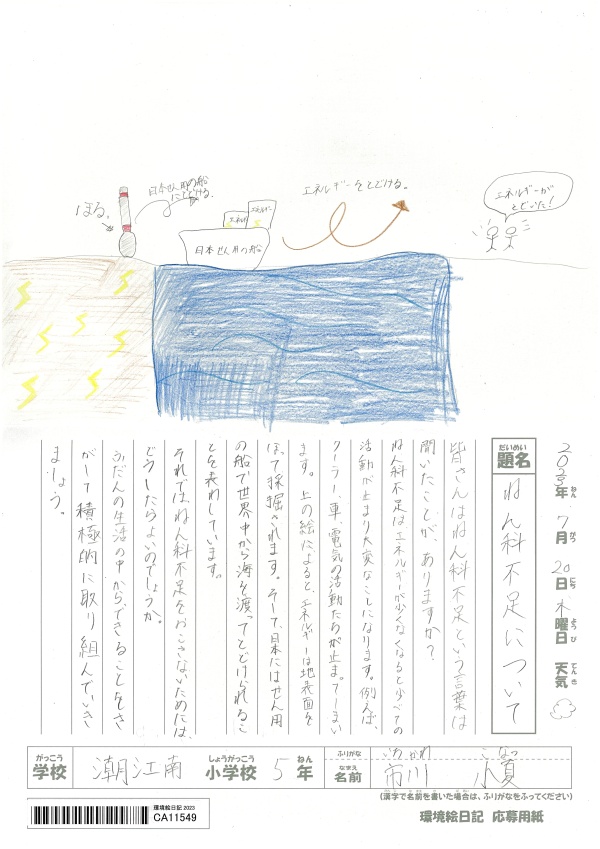 ほる。
日本せん用の船
にとどける。
エネルギー
エネルギー
日本せん用の船
エネルギーをとどける。
エネルギーが
とどいた!
2023年 7月 20日 木曜日 天気
ねん がつ にち ようび てんき
だいめい
題名
ねん科不足について
皆さんはねん科不足という言葉は
聞いたことが、ありますか?
ねん科不足はエネルギーが少くなくなると少べての
活動が止まり大変なことになります。例えば、
クーラー、車、電気の活動たちが止ま。てしまい
ます。上の絵によると、エネルギーは地表面を
ほって採掘されます。そして、日本にはせん用
の船で世界中から海を渡ってとどけられるこ
とを表わしています。
それでは、ねん科不足をおこさないためには、
どうしたらよいのでしょうか。
ふだんの生活の中からできることをさ
がして積極的に取り組んでいき
ましょう。
がっこう
学校
潮江南
しょうがっこう
小学校
5
ねん
年
ふりがな
なまえ
名前
いちかわ こなつ
市川 小夏
(漢字で名前を書いた場合は、ふりがなをふってください)
環境絵日記 2023
CA11549
環境絵日記 応募用紙